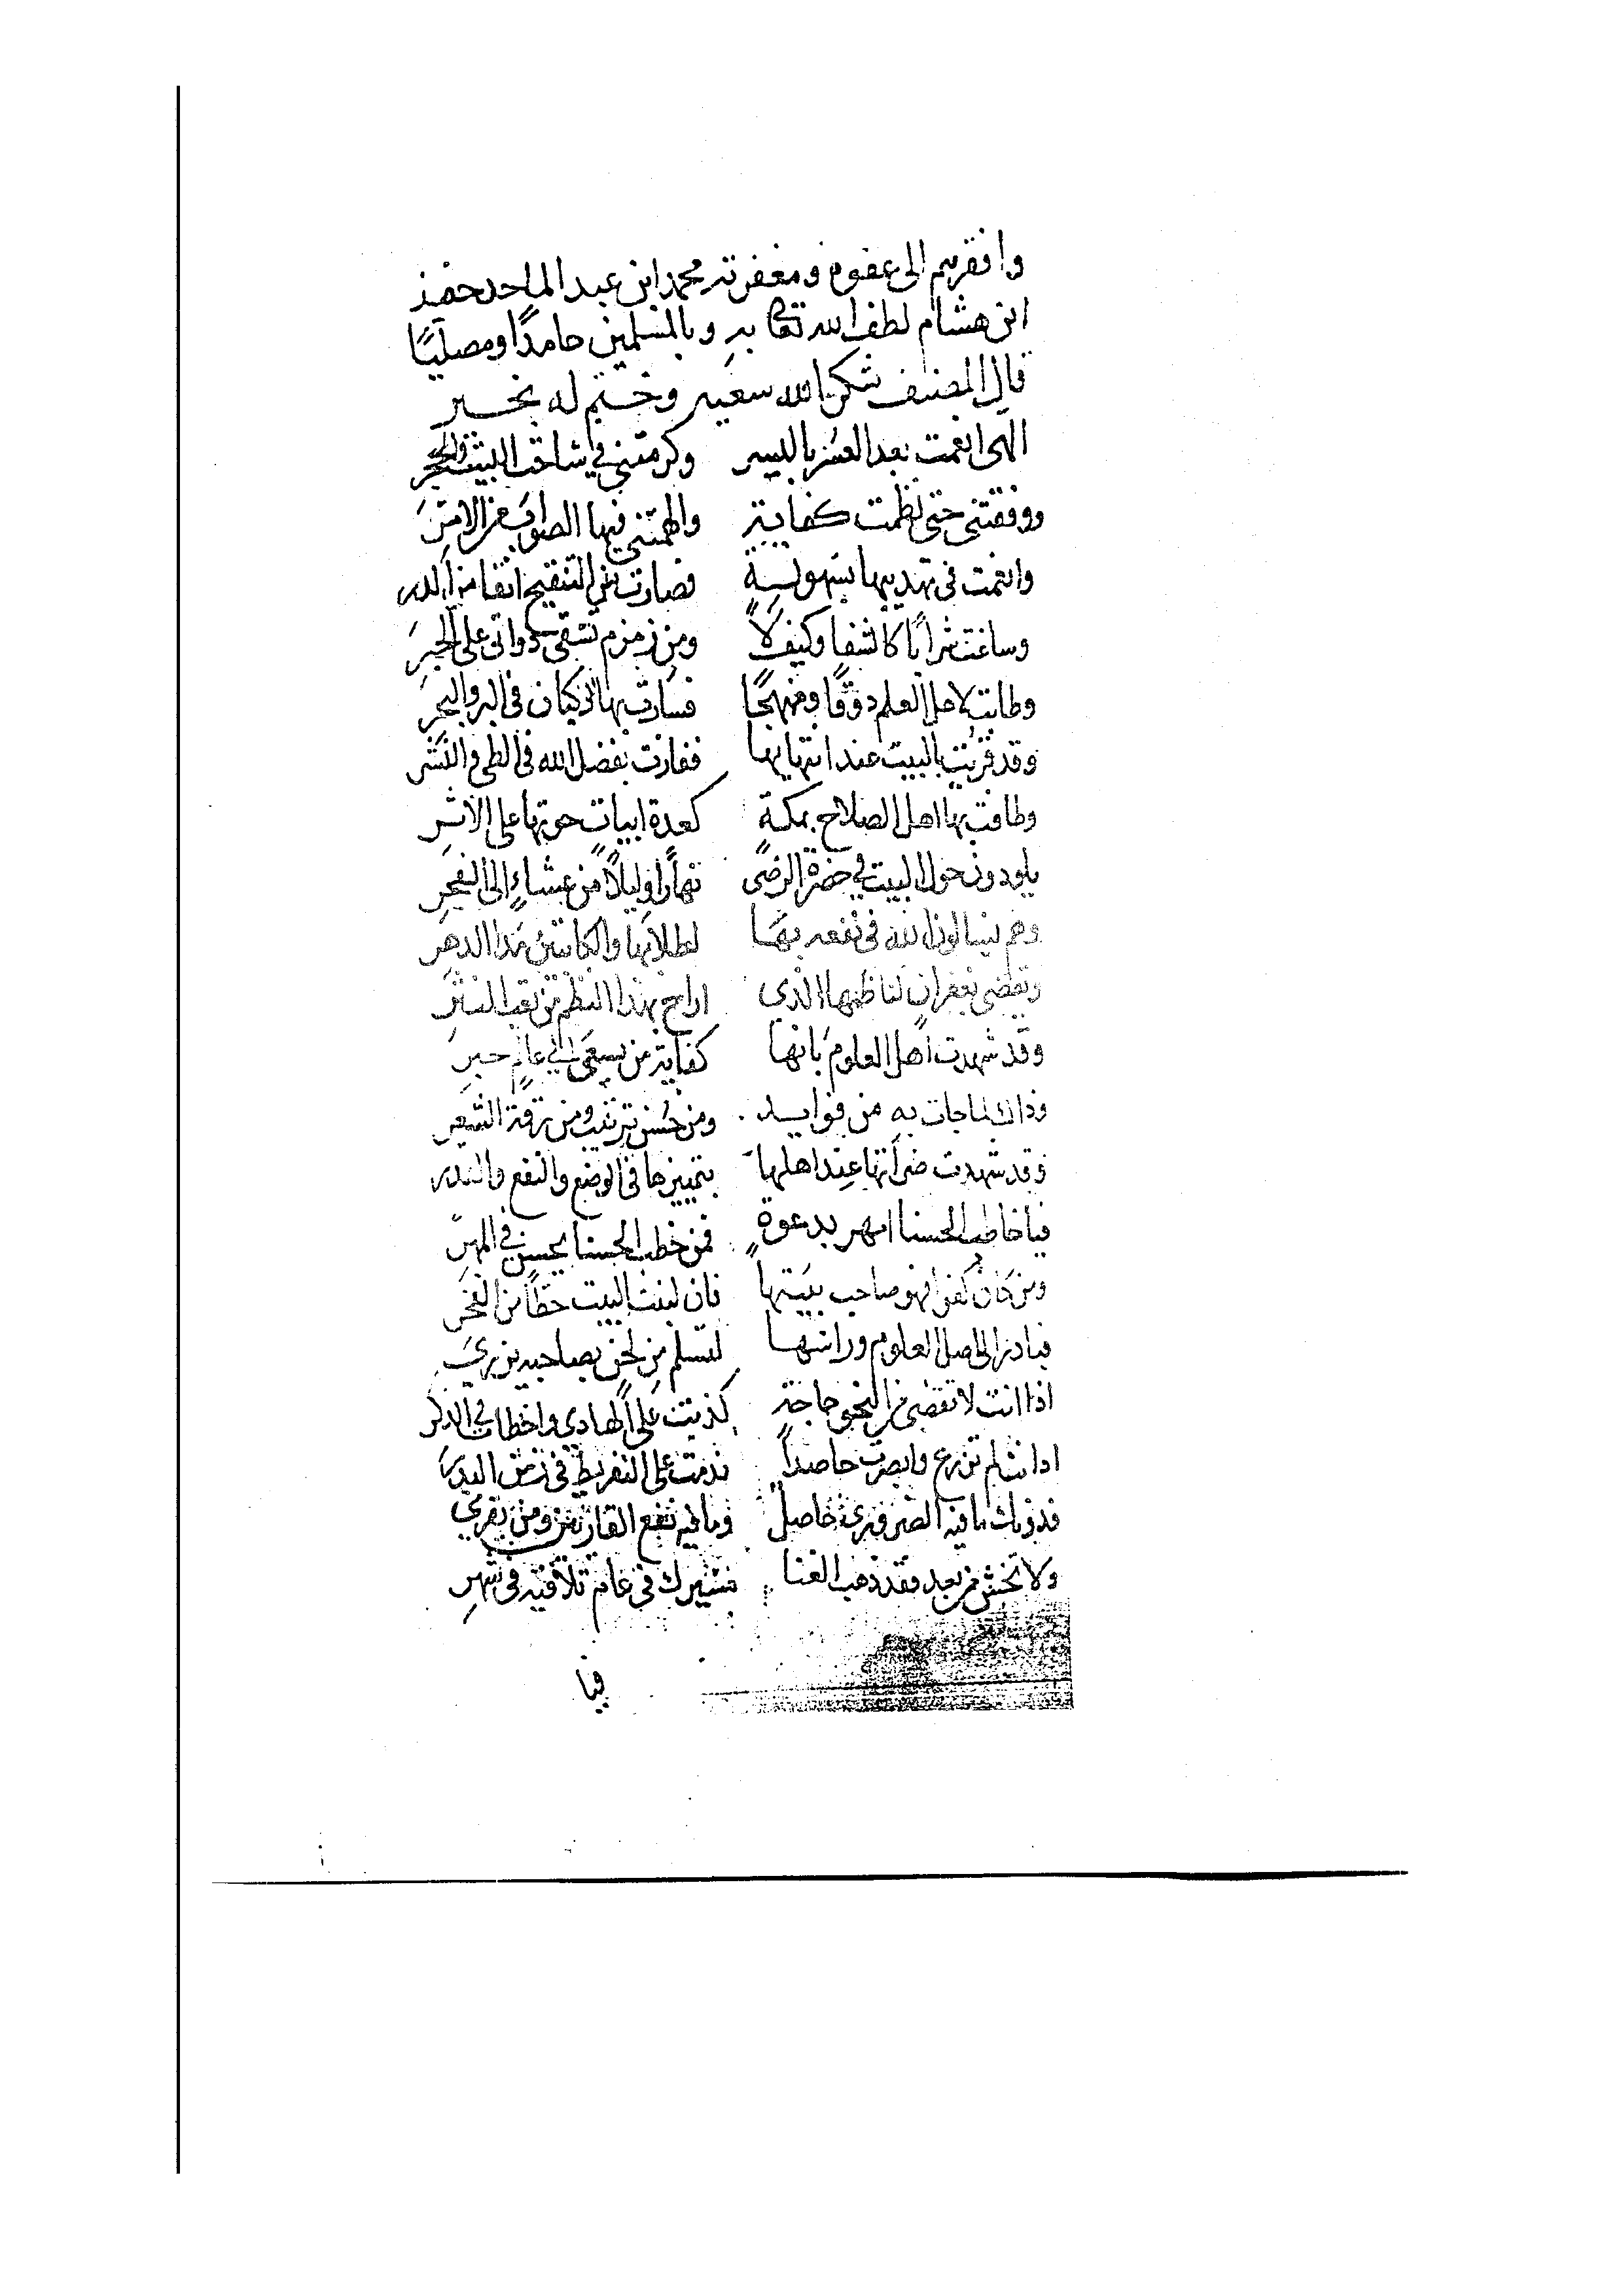 وافقرهم الى عفوه ومغفرته محمد ابن عبد الماجد حفيد
ابن هشام لطف الله تعالى به وبالمسلمين حامدًا ومصليًا
قال المصنف شكر الله سعيه وختم له بخير
الهى انعمت بعد العسر باليسر وكرمتنى في البيت والحجر
ووفقتنى حتى نظمت كفاية والهمتني فيها الصواب من الامر
وانعمت فى تهذيبها بسهولة فصارت من التنقيح انقا من الدر
وساغت شرابًا كاشفا وكيف لا ومن زمزم تسقى دواتى على الحبر
وطابت لاهل العلم ذوقًا ومنهجًا فسارت بها الركبان فى البر والبحر
وقد قربت بالبيت عند انتهايها ففازت بفضل الله فى الطى والنشر
وطافت بها اهل الصلاح بمكة كعدة ابيات حوتها على الاثر
يلوذون حول البيت في حضرة الرضى نهارًا وليلاً من عشاءٍ الى الفجر
وهم يسالون الله فى نفعه بها لطلابها والكاتبين مدا الدهر
وتقضى بغفران لناظمها الذي اراح بهذا النظم من تعب النثر
وقد شهدت اهل العلوم بانها كفاية من يسعى الى عالم حبر
وذاك لما جات به من فوايد ومن حسن ترتيب ومن رقة الشعر
وقد شهدت ضراتها عند اهلها بتمييزها فى الوضع والنفع والقدر
فيا خاطب الحسنا امهر بدعوةٍ فمن خطب الحسنا يحسن في المهر
ومن كان كفوا فهو صاحب بيتها فان لبنت البيت حظًا من الفخر
فبادر الى اصل العلوم وراسها لتسلم من لحن بصاحبه يزري
اذا انت لا تقضى من النحو حاجة كذبت على الهادي واخطات في الذكر
اذا انت لم تزرع وابصرت حاصدًا ندمت على التفريط فى زمن البذر
فدونك ما فيه الضرورى حاصل وما فيه نفع القارئين ومن يقري
ولا تخش من بعد فقد ذهب العنا مسيرك فى عام تلاقيه فى شهر
فيا